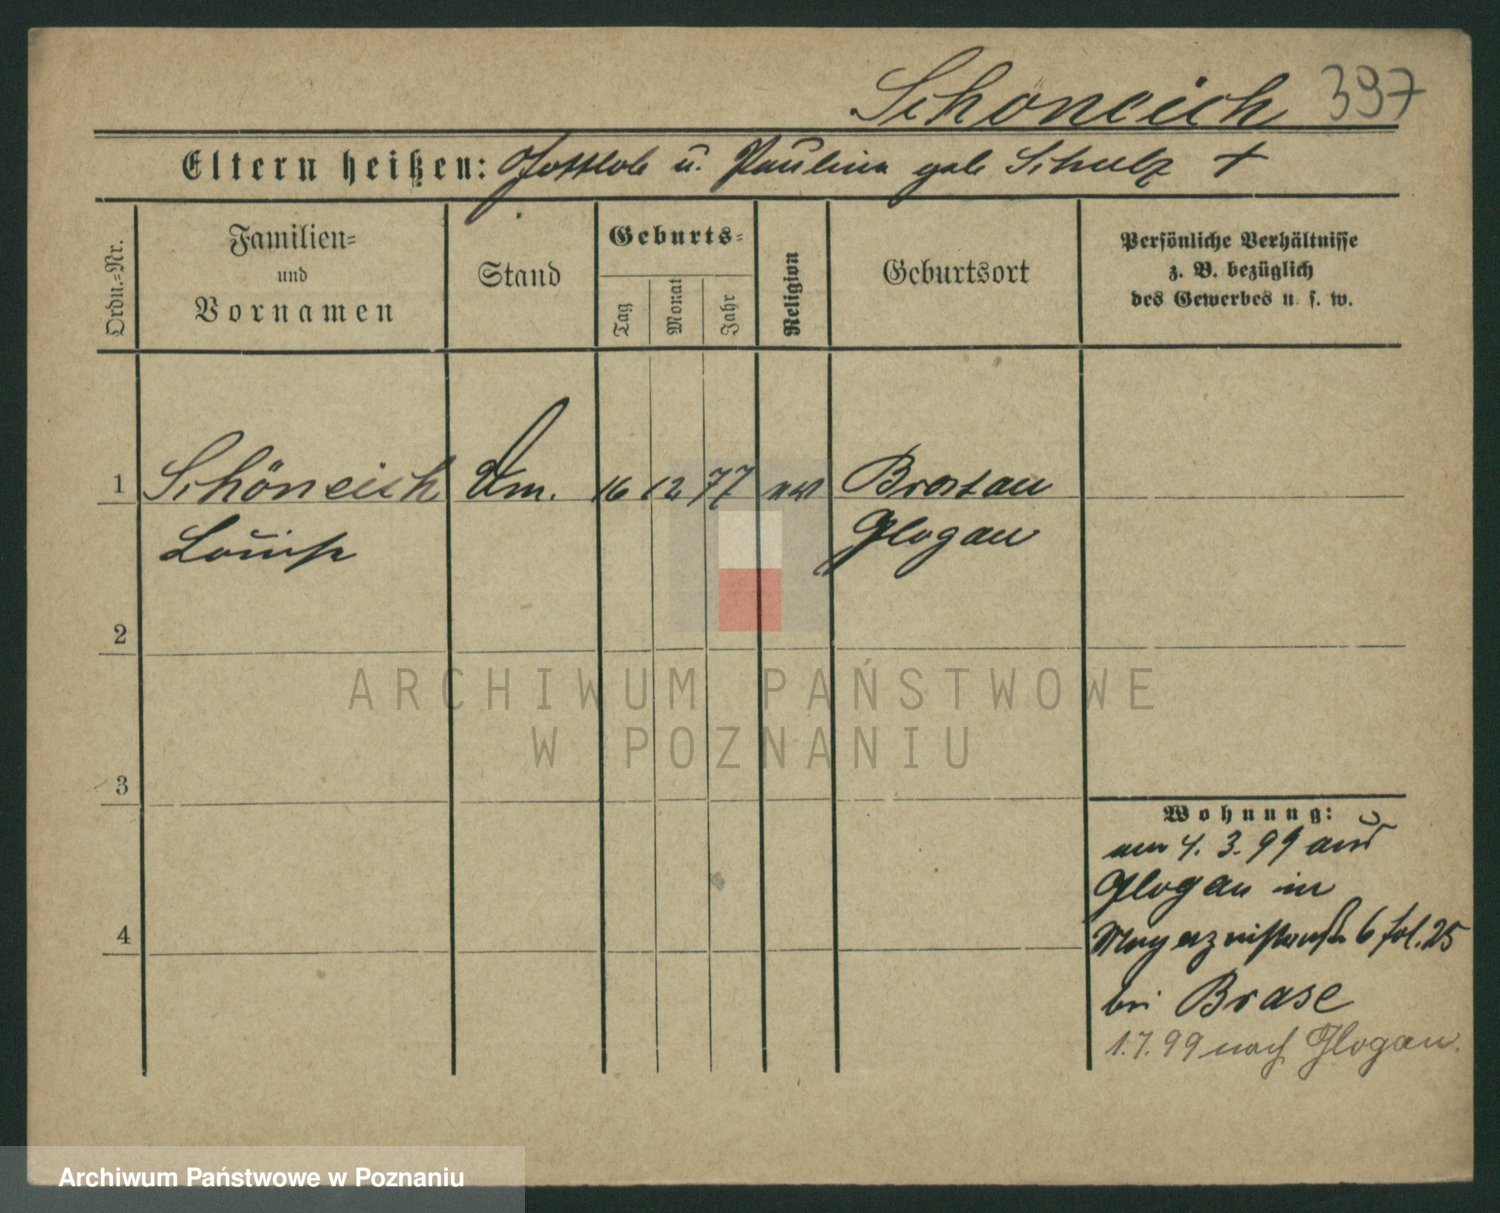 Schöneich 397
Eltern heißen: Gottlob u. Paulina geb Schulz +
Ordn.-Nr.
Familien-
und
Vornamen
Stand
Geburts-
Tag
Monat
Jahr
Religion
Geburtsort
Persönliche Verhältnisse
z. B. bezüglich
des Gewerbes u. s. w.
1 Schöneich 16 12 77 ev Brostau
Louise Glogau
2
3
4
Wohnung:
am 4. 3. 99 aus
Glogau in
6 fol. 25
bei Brase
1.7.99 nach Glogau.
ARCHIWUM PAŃSTWOWE
W POZNANIU
Archiwum Państwowe w Poznaniu